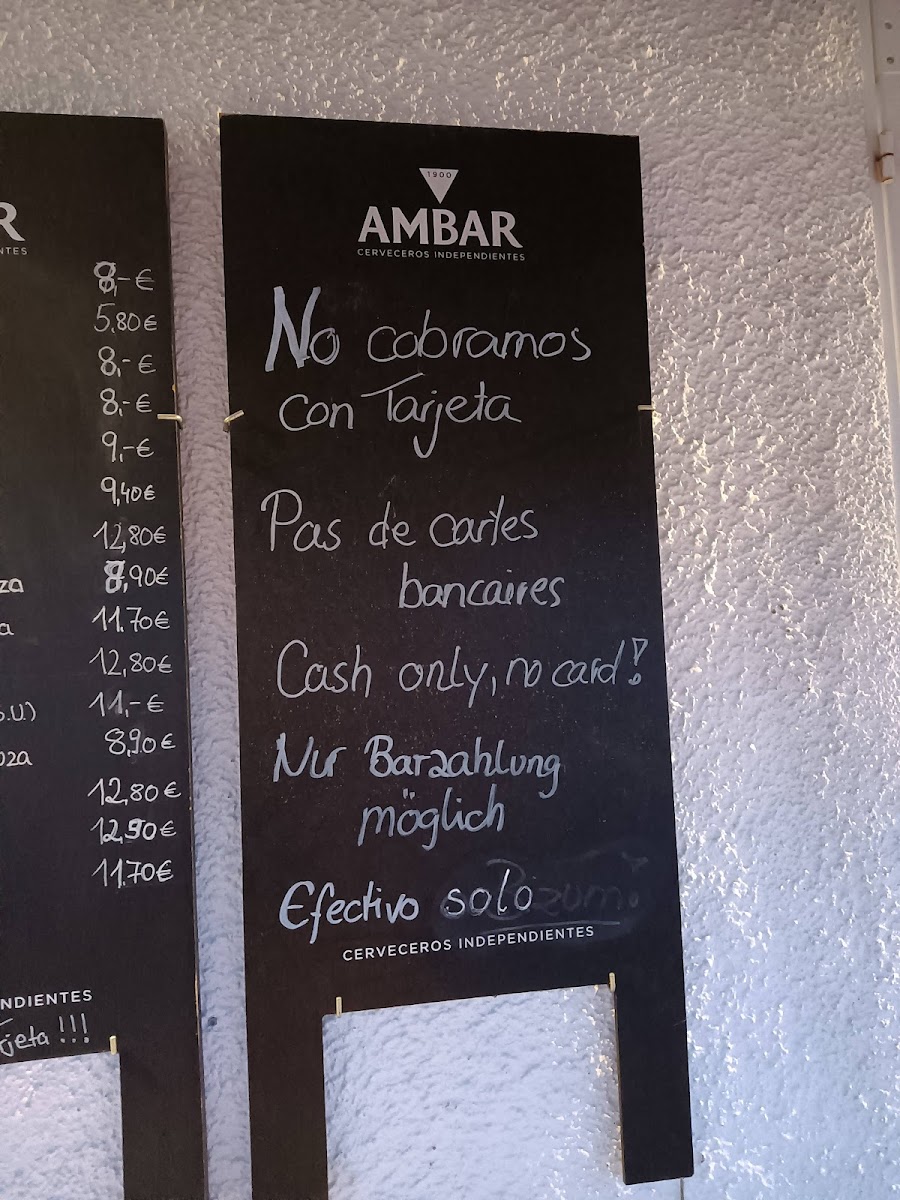 R
NTES
8,-€
5.80€
8,-€
8,-€
9,-€
9,40€
12,80€
za 8,90€
a 11.70€
12,80€
o.U.) 11,-€
oza 8,90€
12,80€
12,90€
11.70€
NDIENTES
Tarjeta !!!
1900
AMBAR
CERVECEROS INDEPENDIENTES
No cobramos
con Tarjeta
Pas de cartes
bancaires
Cash only, no card!
Nur Barzahlung
möglich
Efectivo solo
CERVECEROS INDEPENDIENTES